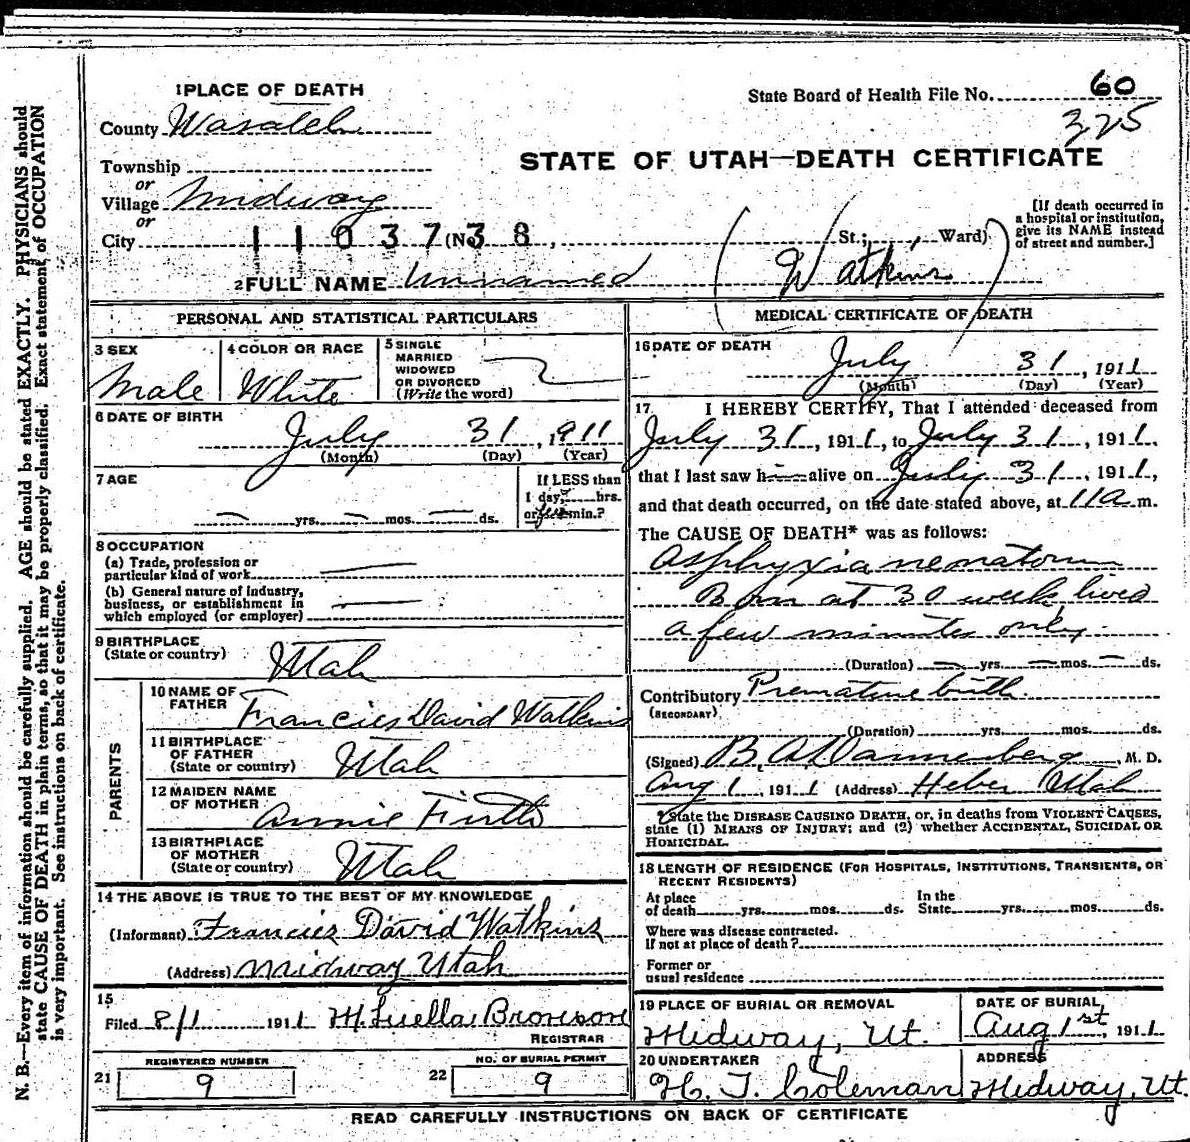 N. B.—Every item of information should be carefully supplied. AGE should be stated EXACTLY. PHYSICIANS should
state CAUSE OF DEATH in plain terms, so that it may be properly classified. Exact statement of OCCUPATION
is very important. See instructions on back of certificate.
1 PLACE OF DEATH
State Board of Health File No. 60
325
County Wasatch
STATE OF UTAH—DEATH CERTIFICATE
Township
or
Village Midway
or
City 11 0 3 7 (No. 3 8, St.; Ward)
[If death occurred in
a hospital or institution,
give its NAME instead
of street and number.]
2 FULL NAME Unnamed (Watkins)
PERSONAL AND STATISTICAL PARTICULARS
3 SEX
Male
4 COLOR OR RACE
White
5 SINGLE
MARRIED
WIDOWED
OR DIVORCED
(Write the word)
6 DATE OF BIRTH
July 31, 1911
(Month) (Day) (Year)
7 AGE
yrs. mos. ds.
If LESS than
1 day, hrs.
or few min.?
8 OCCUPATION
(a) Trade, profession or
particular kind of work
(b) General nature of industry,
business, or establishment in
which employed (or employer)
9 BIRTHPLACE
(State or country)
Utah
PARENTS
10 NAME OF
FATHER
Francies David Watkins
11 BIRTHPLACE
OF FATHER
(State or country)
Utah
12 MAIDEN NAME
OF MOTHER
Annie Firth
13 BIRTHPLACE
OF MOTHER
(State or country)
Utah
14 THE ABOVE IS TRUE TO THE BEST OF MY KNOWLEDGE
(Informant) Francies David Watkins
(Address) Midway Utah
15
Filed 8/1 1911 M. Luella Bronson
REGISTRAR
REGISTERED NUMBER
21 9
NO. OF BURIAL PERMIT
22 9
MEDICAL CERTIFICATE OF DEATH
16 DATE OF DEATH
July 31, 1911
(Month) (Day) (Year)
17 I HEREBY CERTIFY, That I attended deceased from
July 31, 1911, to July 31, 1911,
that I last saw him alive on July 31, 1911,
and that death occurred, on the date stated above, at 11 a m.
The CAUSE OF DEATH* was as follows:
Asphyxia neonatorum
Born at 30 weeks, lived
a few minutes only.
(Duration) yrs. mos. ds.
Contributory Premature birth
(SECONDARY)
(Duration) yrs. mos. ds.
(Signed) B. A. Dannenberg, M. D.
Aug 1, 1911 (Address) Heber Utah
*State the DISEASE CAUSING DEATH, or, in deaths from VIOLENT CAUSES,
state (1) MEANS OF INJURY; and (2) whether ACCIDENTAL, SUICIDAL OR
HOMICIDAL.
18 LENGTH OF RESIDENCE (FOR HOSPITALS, INSTITUTIONS, TRANSIENTS, OR
RECENT RESIDENTS)
At place
of death yrs. mos. ds.
In the
State yrs. mos. ds.
Where was disease contracted.
If not at place of death?
Former or
usual residence
19 PLACE OF BURIAL OR REMOVAL
Midway, Ut.
DATE OF BURIAL,
Aug 1st, 1911
20 UNDERTAKER
H. T. Coleman
ADDRESS
Midway, Ut.
READ CAREFULLY INSTRUCTIONS ON BACK OF CERTIFICATE